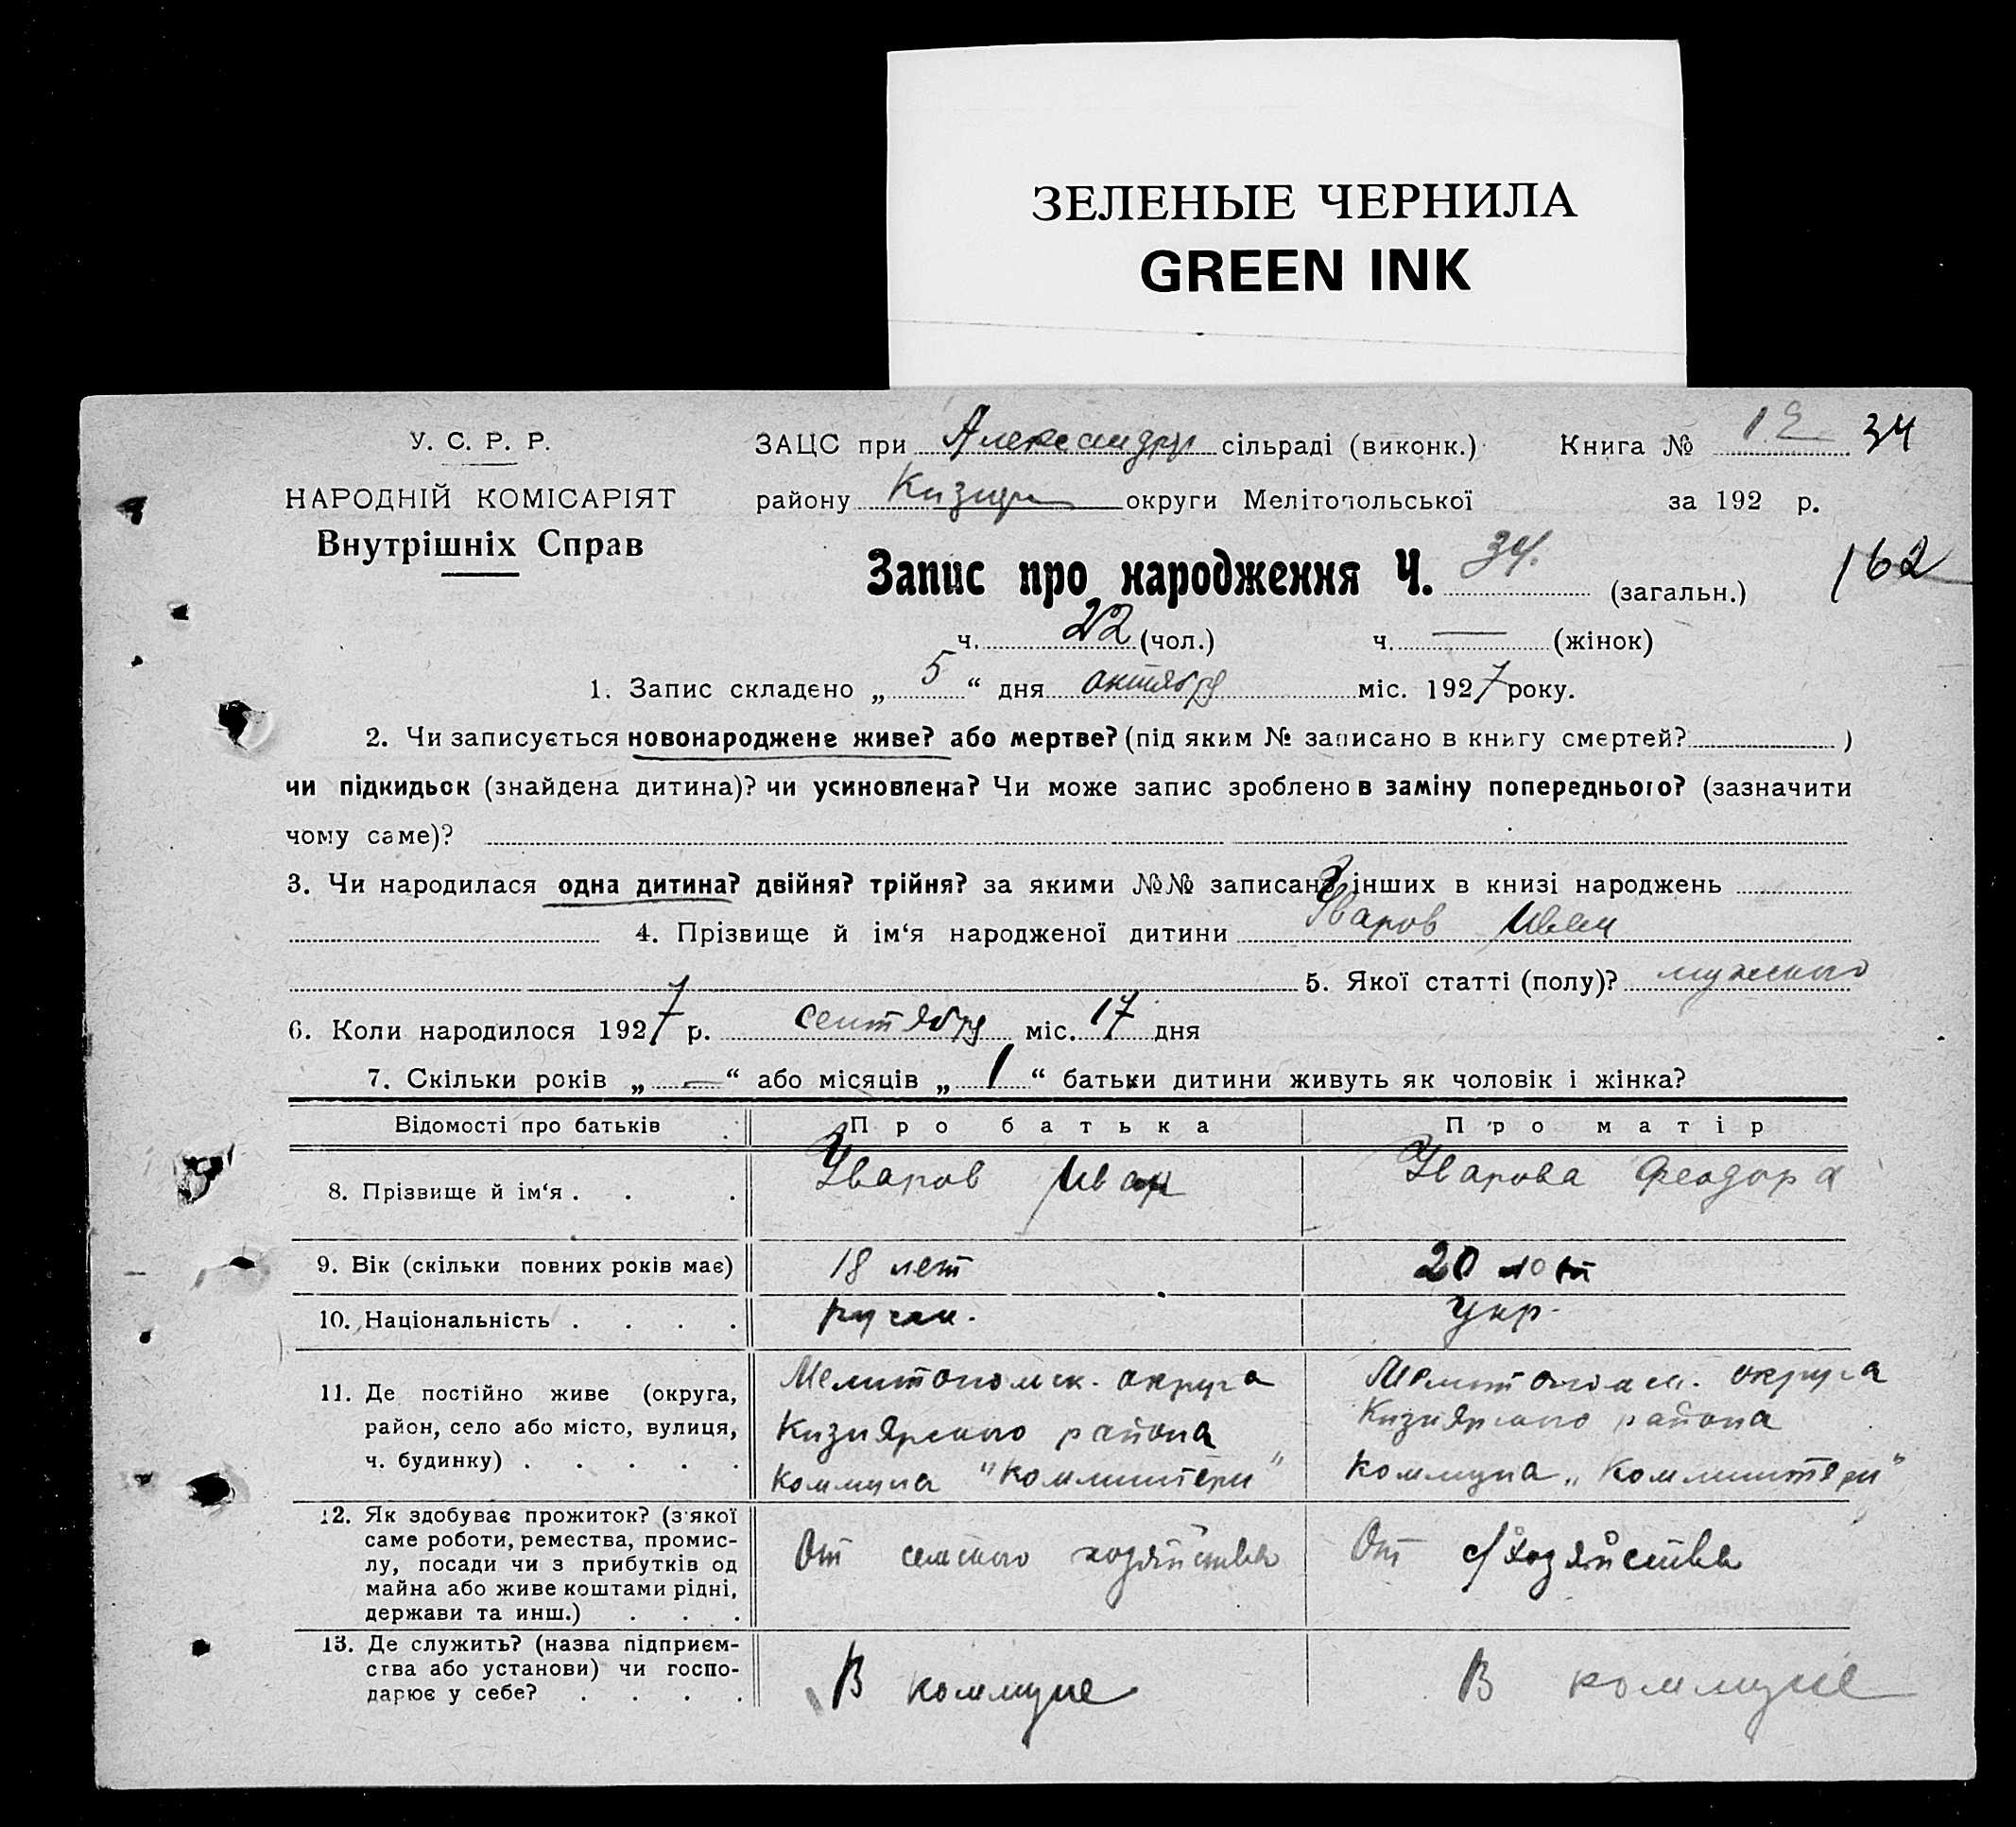 ЗЕЛЕНЫЕ ЧЕРНИЛА
GREEN INK
У. С. Р. Р.
НАРОДНІЙ КОМІСАРІЯТ
Внутрішніх Справ
ЗАЦС при Александр сільраді (виконк.) Книга № 12 34
району Кизияр округи Мелітопольської за 192 р.
Запис про народження Ч. 34. (загальн.) 162
ч. 22 (чол.) ч. — (жінок)
1. Запис складено „ 5 “ дня октября міс. 1927 року.
2. Чи записується новонароджене живе? або мертве? (під яким № записано в книгу смертей? )
чи підкидьок (знайдена дитина)? чи усиновлена? Чи може запис зроблено в заміну попереднього? (зазначити
чому саме)?
3. Чи народилася одна дитина? двійня? трійня? за якими №№ записано інших в книзі народжень
4. Прізвище й ім‘я народженої дитини Уваров Иван
5. Якої статті (полу)? мужского
6. Коли народилося 1927 р. сентября міс. 17 дня
7. Скільки років „ — “ або місяців „ 1 “ батьки дитини живуть як чоловік і жінка?
Відомості про батьків Про батька Про матір
8. Прізвище й ім‘я . . . Уваров Иван Уварова Феодора
9. Вік (скільки повних років має) 18 лет 20 лет
10. Національність . . . . русск. Укр.
11. Де постійно живе (округа,
район, село або місто, вулиця,
ч. будинку) . . . . .
Мелитопольск. округа
Кизиярского района
коммуна "Коминтерн"
Мелитопольск. округа
Кизиярского района
коммуна „Коминтерн"
12. Як здобуває прожиток? (з'якої
саме роботи, ремества, промис-
лу, посади чи з прибутків од
майна або живе коштами рідні,
держави та инш.) . . .
От сельского хозяйства
От с/хозяйства
13. Де служить? (назва підприєм-
ства або установи) чи госпо-
дарює у себе? . . . .
В коммуне
В коммуне